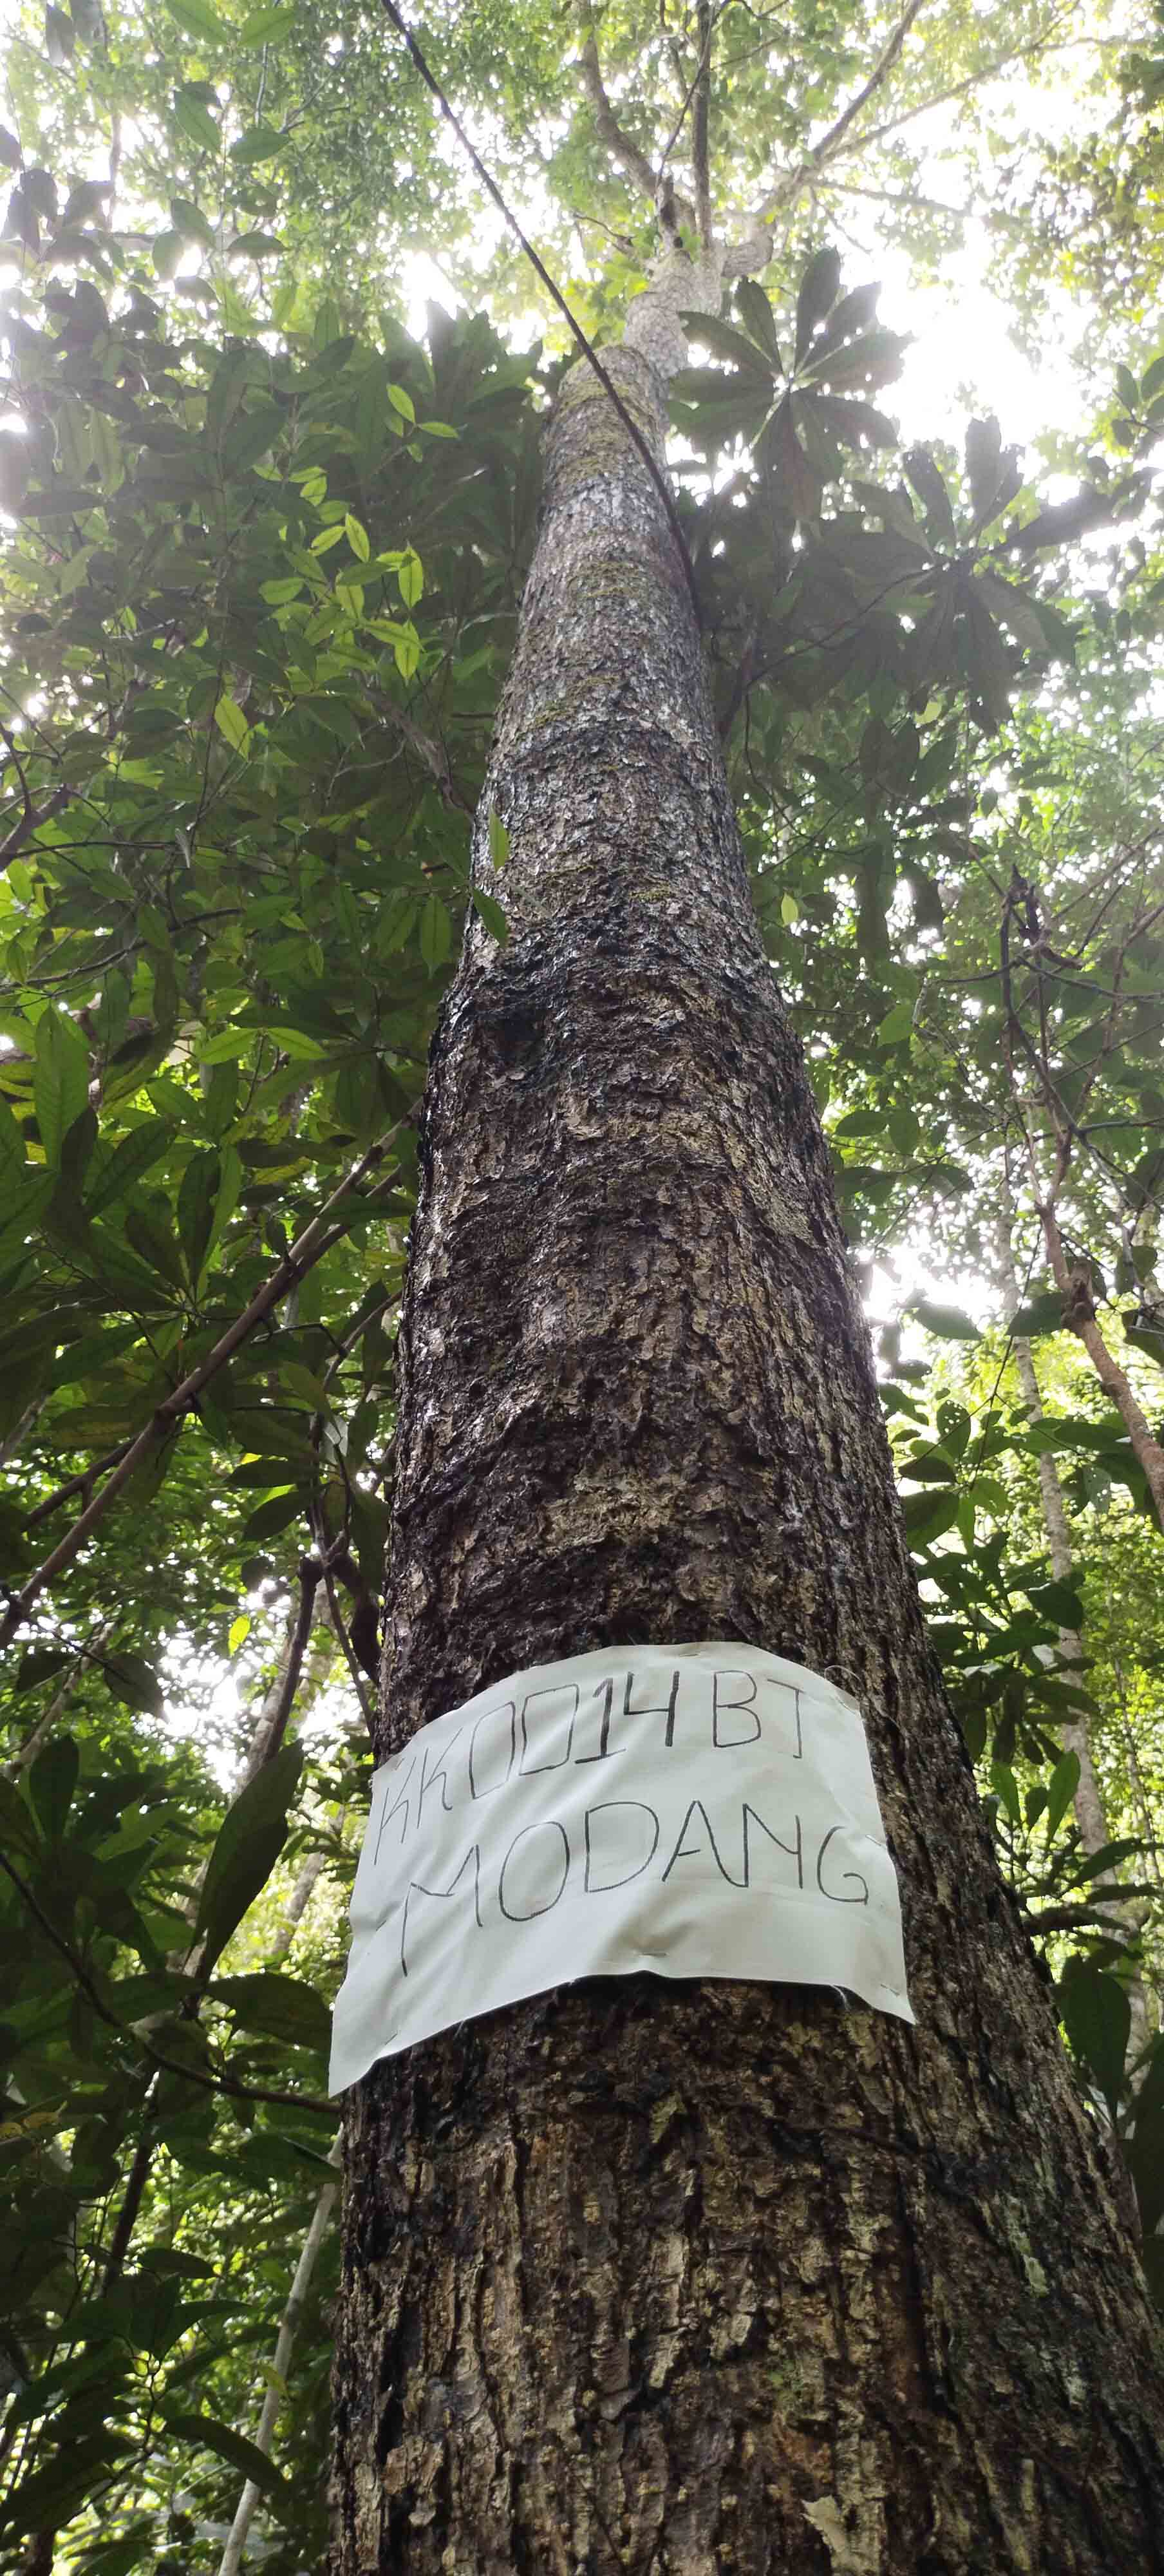 KK0014BT
MODANG